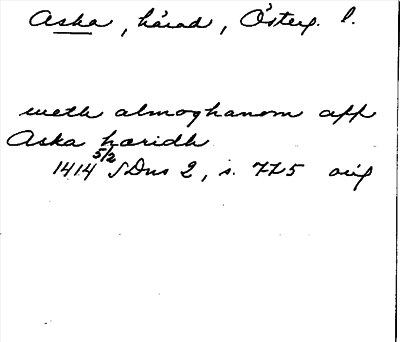 Aska, härad, Österg. l.
weth almoghanom aff
Aska hæridh
1414 5/2 SDns 2, s. 775 orig